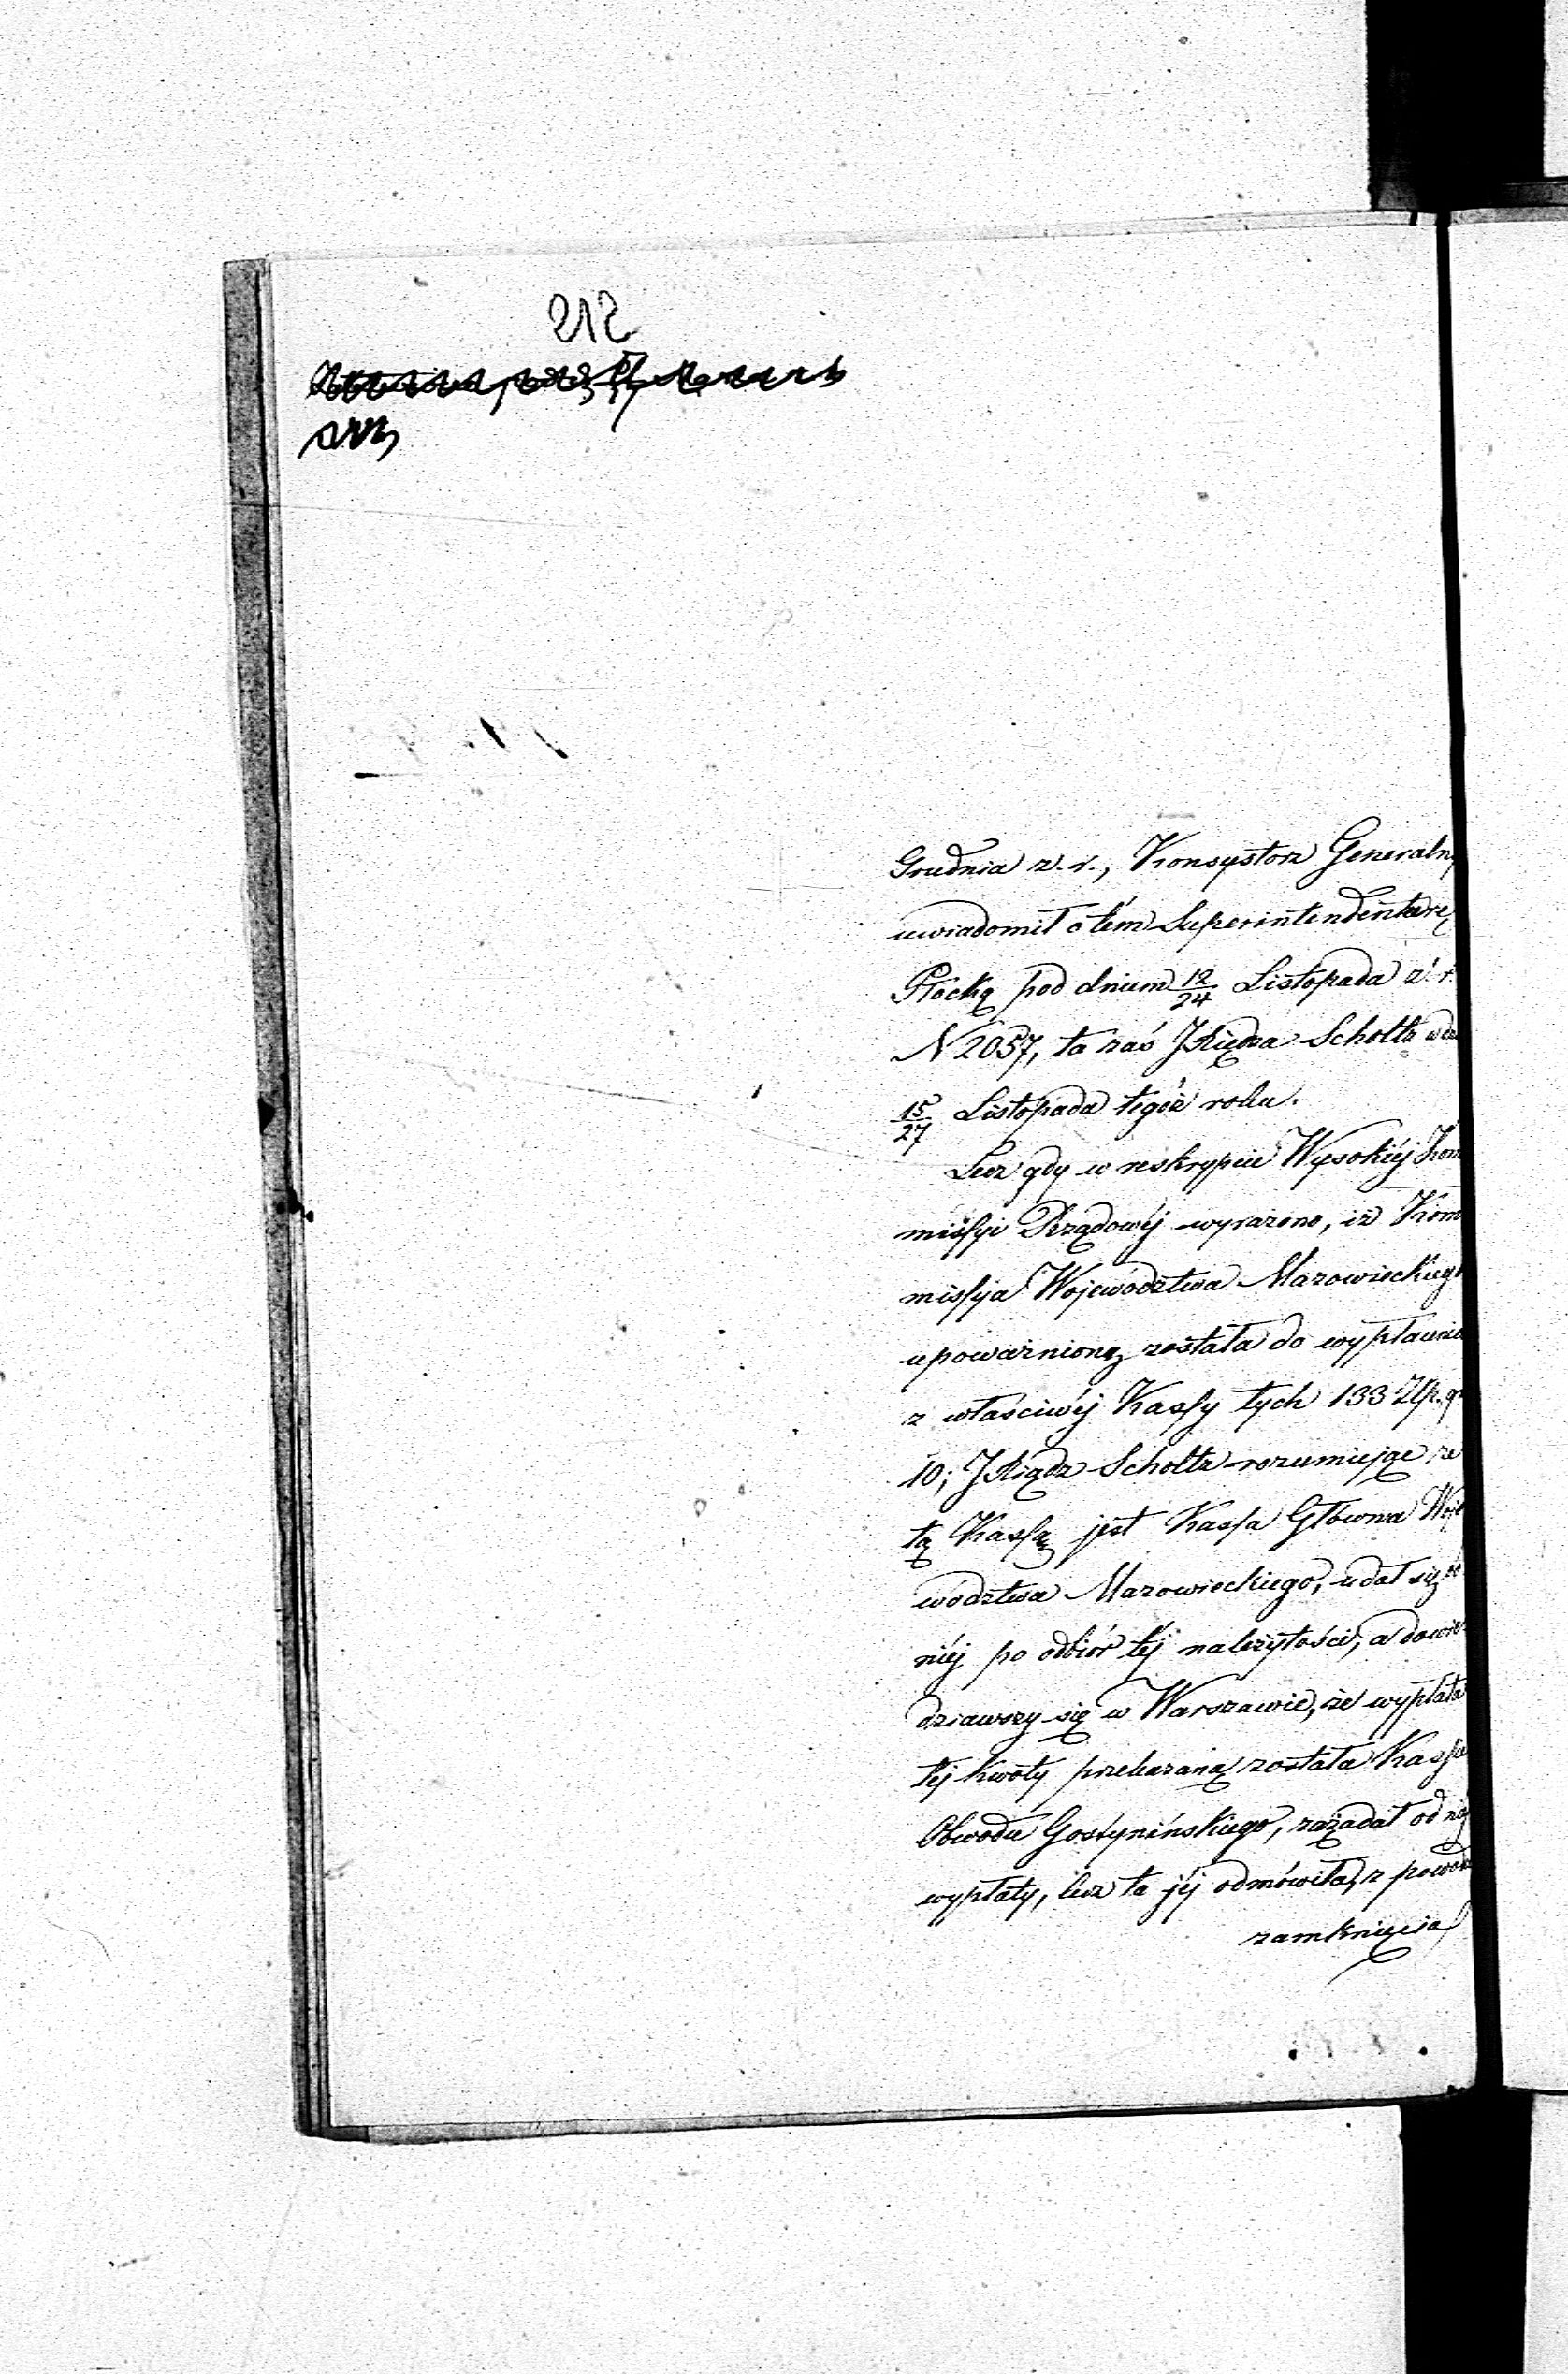 212
Grudnia z. r., Konsystorz Generalny
uwiadomił o tém Superintendenturę
Płocką pod dniem 12/24 Listopada z. r.
N 2057, ta zaś JXiędza Scholtz
15/27 Listopada tegóż roku.
Lecz gdy w reskrypcie Wysokiéj Kom
missyi Rządowéj wyrażono, iż Kom
missyja Województwa Mazowieckiego
upoważnioną została do wypłacenia
z właściwéj Kassy tych 133 Złp. gr
10; JXiądz Scholtz rozumiejąc że
tą Kassą jest Kassa Główna Woje
wództwa Mazowieckiego, udał się do
niéj po odbiór téj należytości, a dowie
dziawszy się w Warszawie, że wypłata
téj kwoty przekazaną została Kassie
Obwodu Gostynińskiego, zażądał od niéj
wypłaty, lecz ta jéj odmówiła, z powodu
zamknięcia